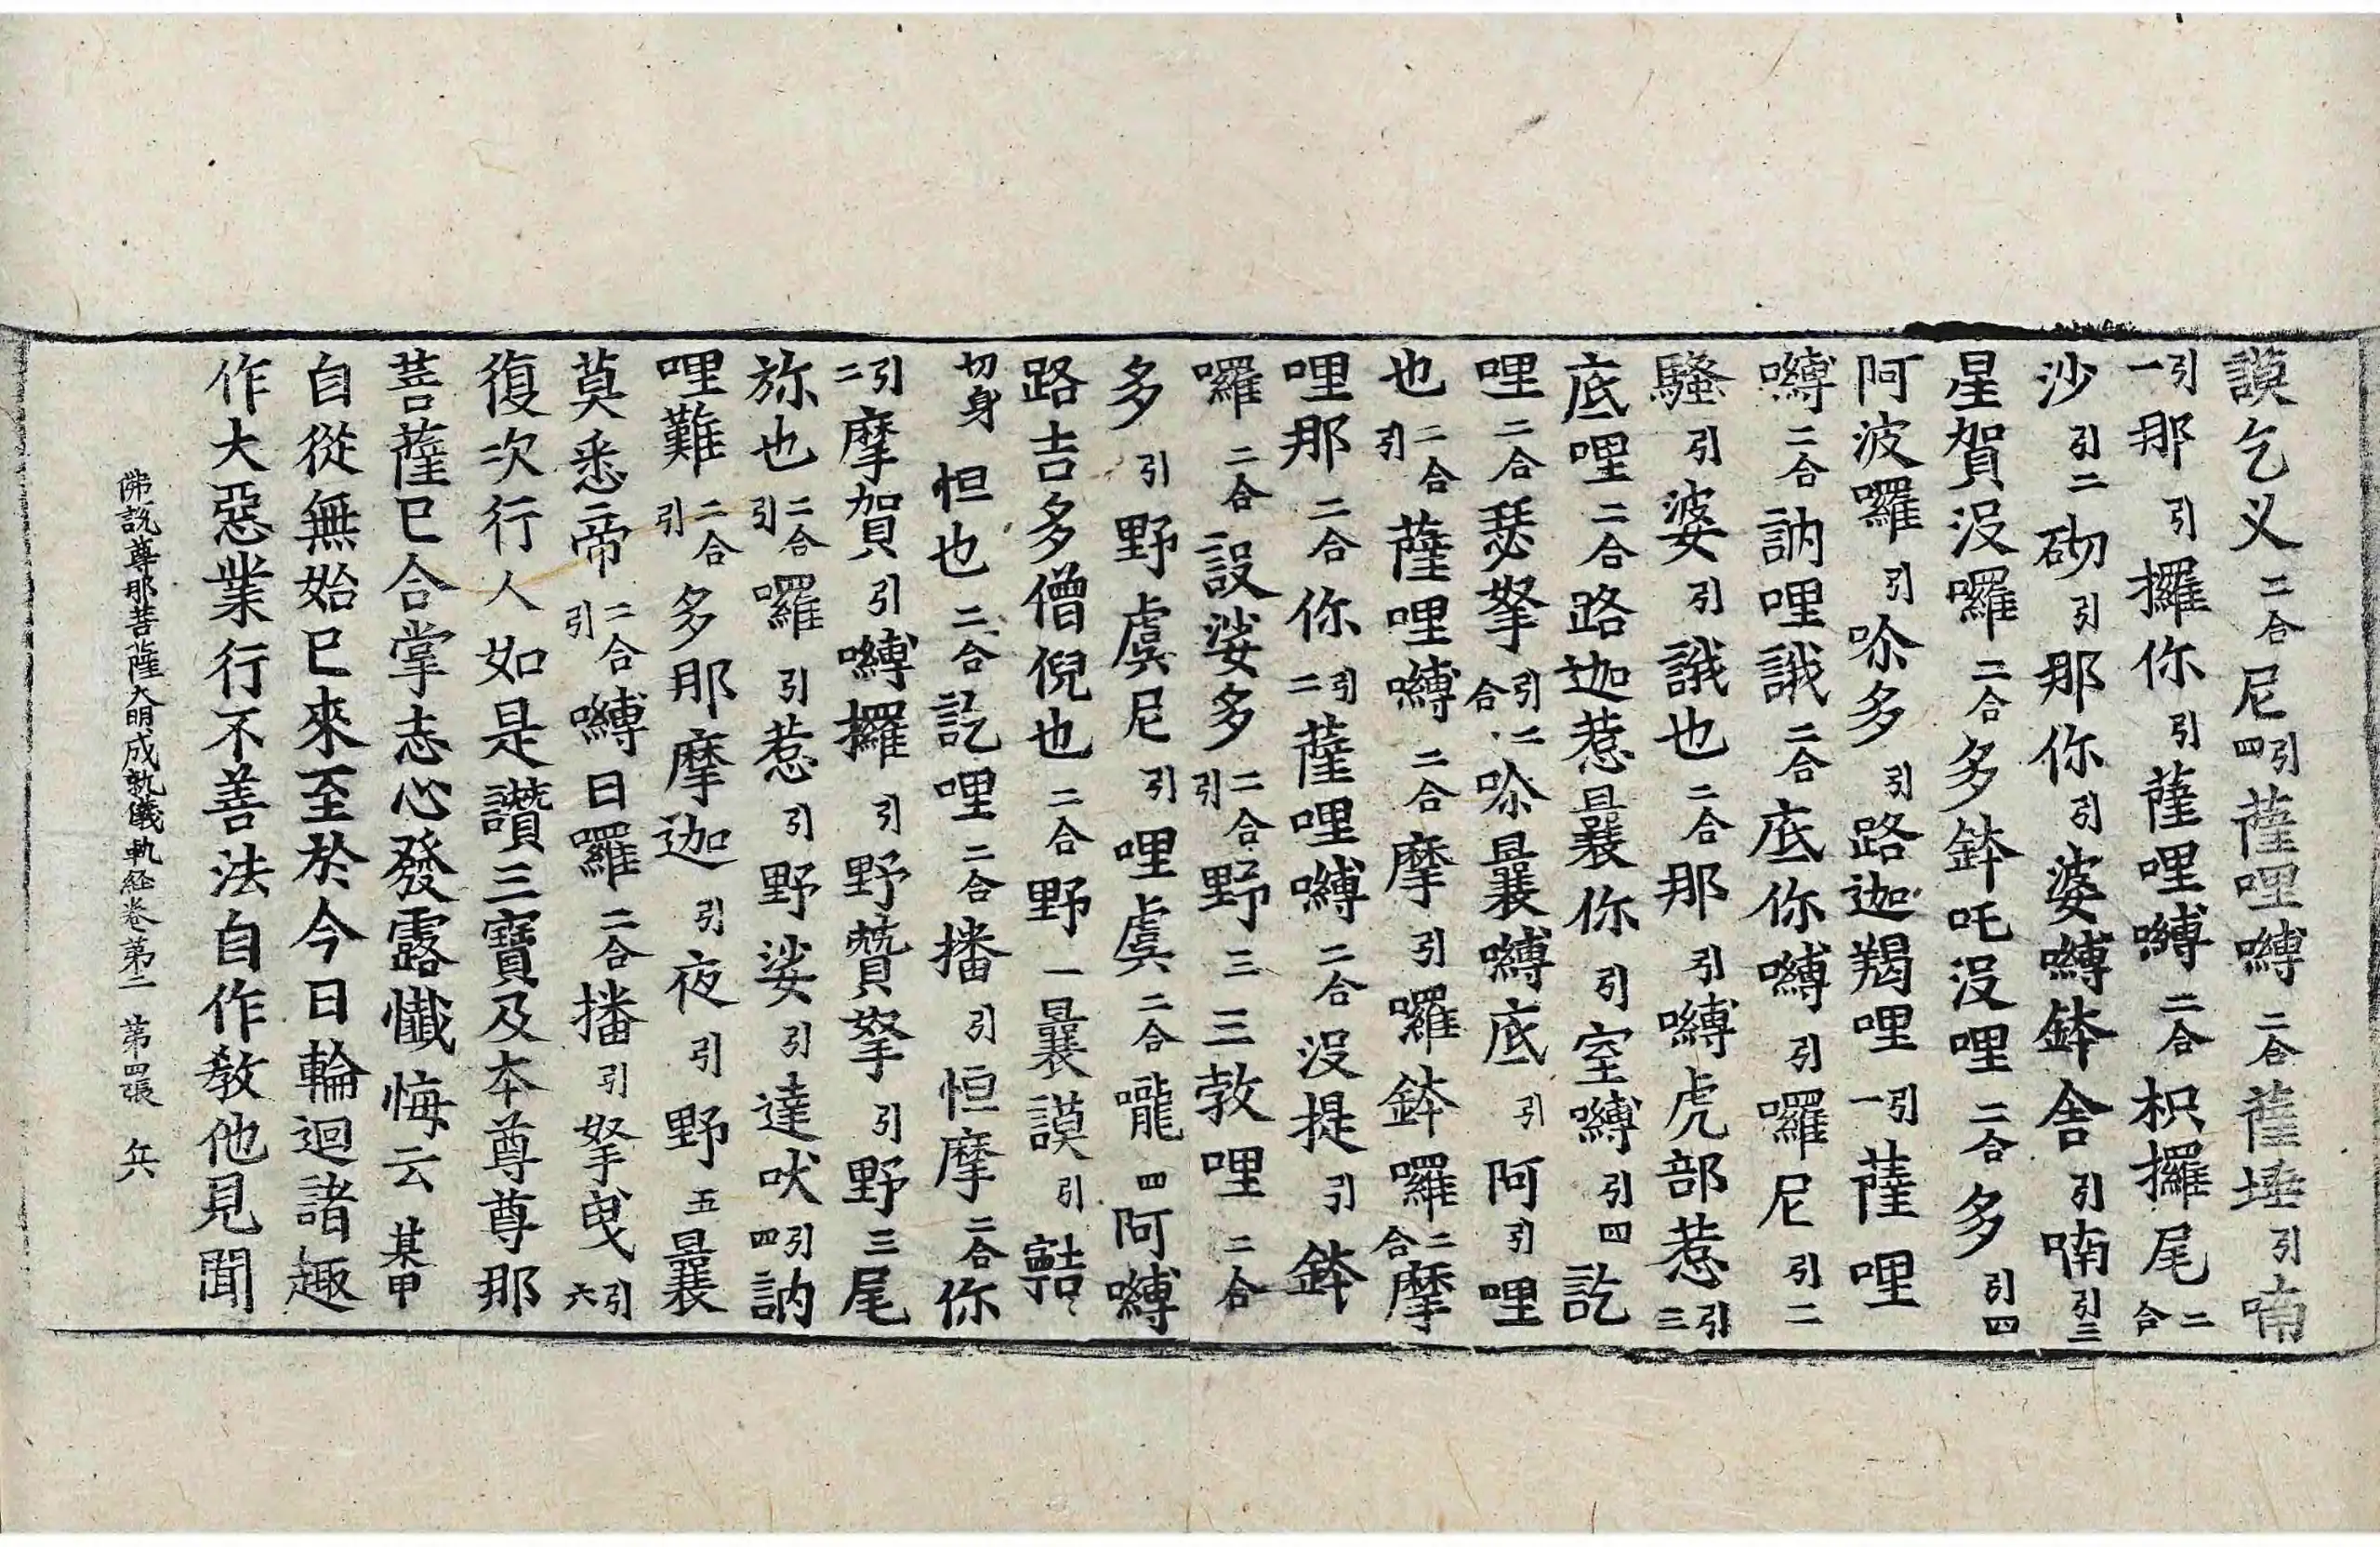 謨乞义二合尼引四薩哩嚩二合薩埵引喃
引一那引攞你引薩哩嚩二合枳攞尾二合
沙引二砌引那你引婆嚩鉢舍引喃引三
星賀沒囉二合多鉢吒沒哩二合多引四
阿波囉引哳多引路迦羯哩引一薩哩
嚩二合訥哩誐二合底你嚩引囉尼引二
騷引婆引誐也二合那引嚩虎部惹引三
底哩二合路迦惹曩你引室嚩引四訖
哩二合瑟拏引二合哳曩嚩底引阿引哩
也二合引薩哩嚩二合摩引囉鉢囉二合摩
哩那二合你引二薩哩嚩二合沒提引鉢
囉二合設娑多二合引野三三敦哩二合
多引野虞尼引哩虞二合嚨四阿嚩
路吉多僧倪也二合野一曩謨引囍
切身怛也二合訖哩二合播引怛摩二合你
引二摩賀引嚩攞引野贊拏引野三尾
旀也二合引囉引惹引野娑引達吠引四訥
哩難二合引多那摩迦引夜引野五曩
莫悉帝二合引嚩日囉二合播引拏曳引六
復次行人如是讚三寶及本尊尊那
菩薩巳合掌志心發露懺悔云某甲
自從無始巳來至於今日輪迴諸趣
作大惡業行不善法自作教他見聞
佛說尊那菩薩大明成就儀軌経卷第二 第四張 兵